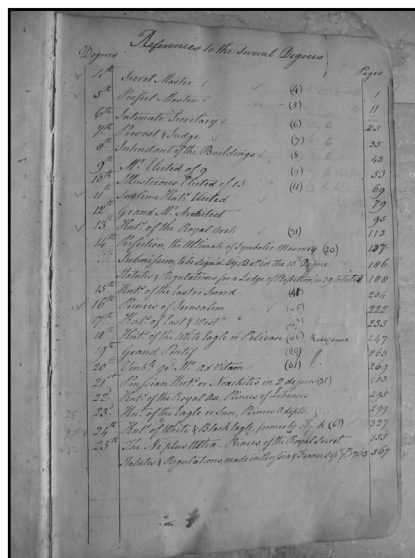 References to the several Degrees
Degrees Pages
4th Secret Master (4) 1
5th Perfect Master (5) 11
6th Intimate Secretary (6) 25
7th Provost & Judge (7) 35
8th Intendant of the Buildings (8) 43
9th Mr. Elected of 9 (9) 53
10th Illustrious Elected of 15 (11) 69
11th Sublime Knt. Elected 79
12th Grand Mr. Architect 95
13th Knt. of the Royal Arch (31) 113
14th Perfection, the Ultimate of Symbolic Masonry (20) 137
Submission, to be signd. by Bro. in the 13th Degree 186
Statutes & Regulations for a Lodge of Perfection in 39 188
15th Knt. of the East or Sword 224
16th Princes of Jerusalem 222
17th Knt. of East & West 235
18th Knt. of the White Eagle or Pelican Rosy 247
19th Grand Pontif 263
20 Ad Vitam (61) 269
21st Prussian Knt. or Noachites in 2 degrees (35) 283
22d Knt. of the Royal Axe, Princes of Lebanus 295
23d Knt. of the Eagle or Sun, Princes Adepts 299
24th Knt. of White & Black Eagle, formerly K. h (63) 327
25th The Ne plus Ultra - Princes of the Royal Secret 333
Statutes & Regulations, made in Prussia & France, Sepr. 7th. 1763 367